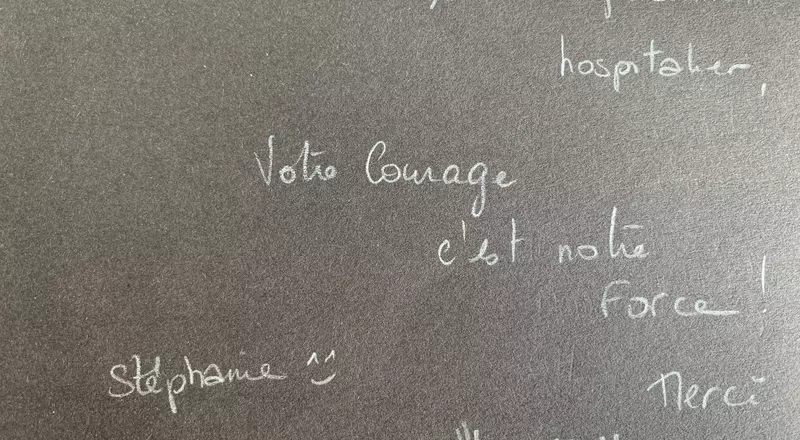 hospitalier,
Votre Courage
c'est notre
Force !
Stéphanie ^^
Merci